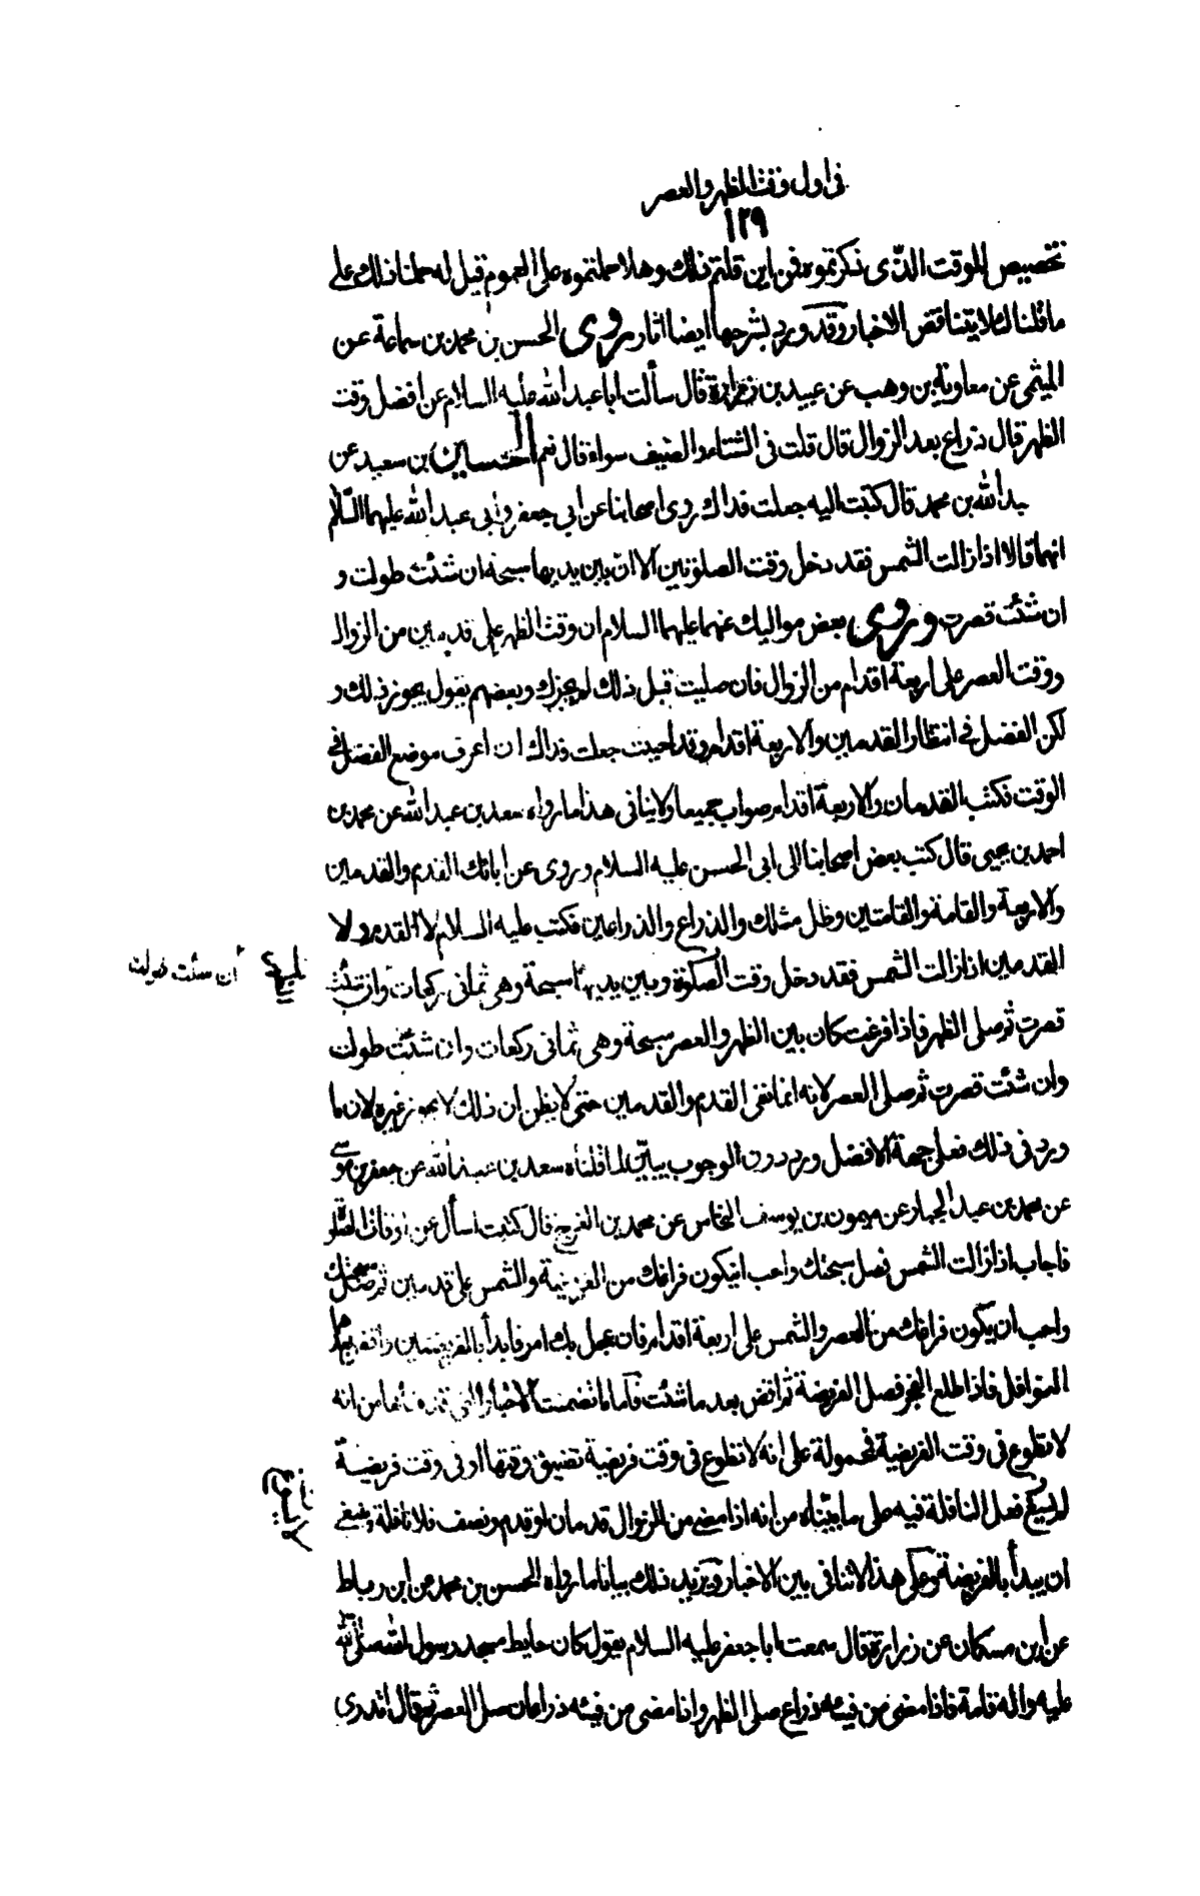 في اول وقت الظهر والعصر
١٢٩
تخصيص للوقت الذي ذكرتموه فمن اين قلتم ذلك وهلا حملتموه على العموم قيل له حملنا ذلك على
ما قلناه لئلا يتناقض الاخبار وقد ورد بشرحها ايضا اثار روى الحسن بن محمد بن سماعة عن
الميثمي عن معاوية بن وهب عن عبيد بن زرارة قال سألت ابا عبد الله عليه السلام عن افضل وقت
الظهر قال ذراع بعد الزوال قال قلت في الشتاء والصيف سواء قال نعم الحسين بن سعيد عن
عبد الله بن محمد قال كتبت اليه جعلت فداك روى اصحابنا عن ابي جعفر وابي عبد الله عليهما السلام
انهما قالا اذا زالت الشمس فقد دخل وقت الصلوتين الا ان بين يديها سبحة ان شئت طولت و
ان شئت قصرت وروى بعض مواليك عنهما عليهما السلام ان وقت الظهر على قدمين من الزوال
ووقت العصر على اربعة اقدام من الزوال فان صليت قبل ذلك لم يجزك وبعضهم يقول يجوز ذلك و
لكن الفضل في انتظار القدمين والاربعة اقدام وقد احببت جعلت فداك ان اعرف موضع الفضل في
الوقت فكتب القدمان والاربعة اقدام صواب جميعا ولا ينافي هذا ما رواه سعد بن عبد الله عن محمد بن
احمد بن يحيى قال كتب بعض اصحابنا الى ابي الحسن عليه السلام وروى عن ابائك القدم والقدمين
والاربعة والقامة والقامتين وظل مثلك والذراع والذراعين فكتب عليه السلام لا القدم ولا
القدمين اذا زالت الشمس فقد دخل وقت الصلوة وبين يديها سبحة وهي ثماني ركعات وان شئت
ان شئت طولت
قصرت ثم صل الظهر فاذا فرغت كان بين الظهر والعصر سبحة وهي ثماني ركعات وان شئت طولت
وان شئت قصرت ثم صل العصر لانه انما نفى القدم والقدمين حتى لا يظن ان ذلك لا يجوز غيره لان ما
ورد في ذلك فعلى جهة الافضل ورد دون الوجوب يبين ما قلناه سعد بن عبد الله عن جعفر بن موسى
عن محمد بن عبد الجبار عن ميمون بن يوسف النخاس عن محمد بن الفرج قال كتبت اسأل عن اوقات الصلوة
فاجاب اذا زالت الشمس فصل سبحتك واحب ان يكون فراغك من الفريضة والشمس على قدمين ثم صل سبحتك
واحب ان يكون فراغك من العصر والشمس على اربعة اقدام فان عجل بك امر فابدأ بالفريضتين واقض بعدهما
النوافل فاذا طلع الفجر فصل الفريضة ثم اقض بعد ما شئت فاما ما تضمنت الاخبار التي من انه
لا تطوع في وقت الفريضة فمحمولة على انه لا تطوع في وقت فريضة تضيق وقتها او في وقت فريضة
لم يسغ فعل النافلة فيه على ما بيناه من انه اذا مضى من الزوال قدمان او قدم ونصف فلا نافلة وينبغي
ان يبدأ بالفريضة وعلى هذا لا تنافي بين الاخبار ويزيد ذلك بيانا ما رواه الحسن بن محمد عن ابن رباط
عن ابن مسكان عن زرارة قال سمعت ابا جعفر عليه السلام يقول كان حايط مسجد رسول الله صلى الله
عليه واله قامة فاذا مضى من فيئه ذراع صلى الظهر واذا مضى من فيئه ذراعان صلى العصر ثم قال اتدري